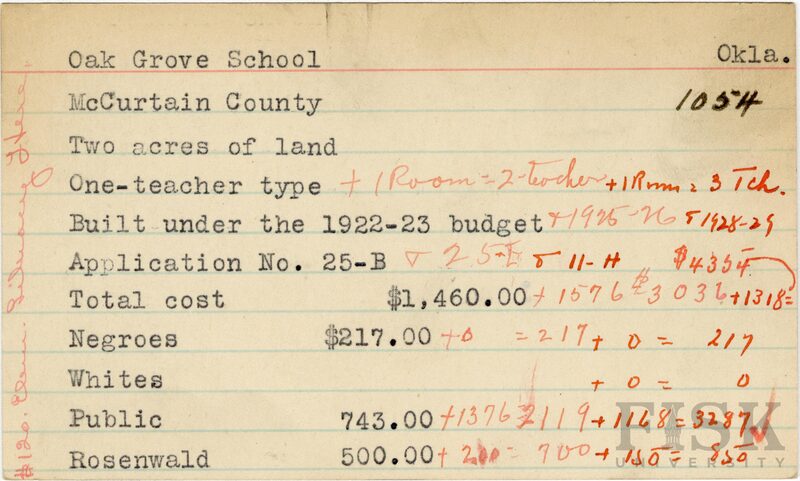 Oak Grove School Okla.
McCurtain County 1054
Two acres of land
One-teacher type + 1 Room = 2-teacher + 1 Room = 3 Tch.
Built under the 1922-23 budget + 1925-26 + 1928-29
Application No. 25-B + 25-I + 11-H $4354
Total cost $1,460.00 + 1576 $3036 + 1318=
Negroes $217.00 + 0 = 217 + 0 = 217
Whites + 0 = 0
Public 743.00 + 1376 = 2119 + 1168 = 3287
Rosenwald 500.00 + 200 = 700 + 150 = 850
FISK
UNIVERSITY
#120. Elem.